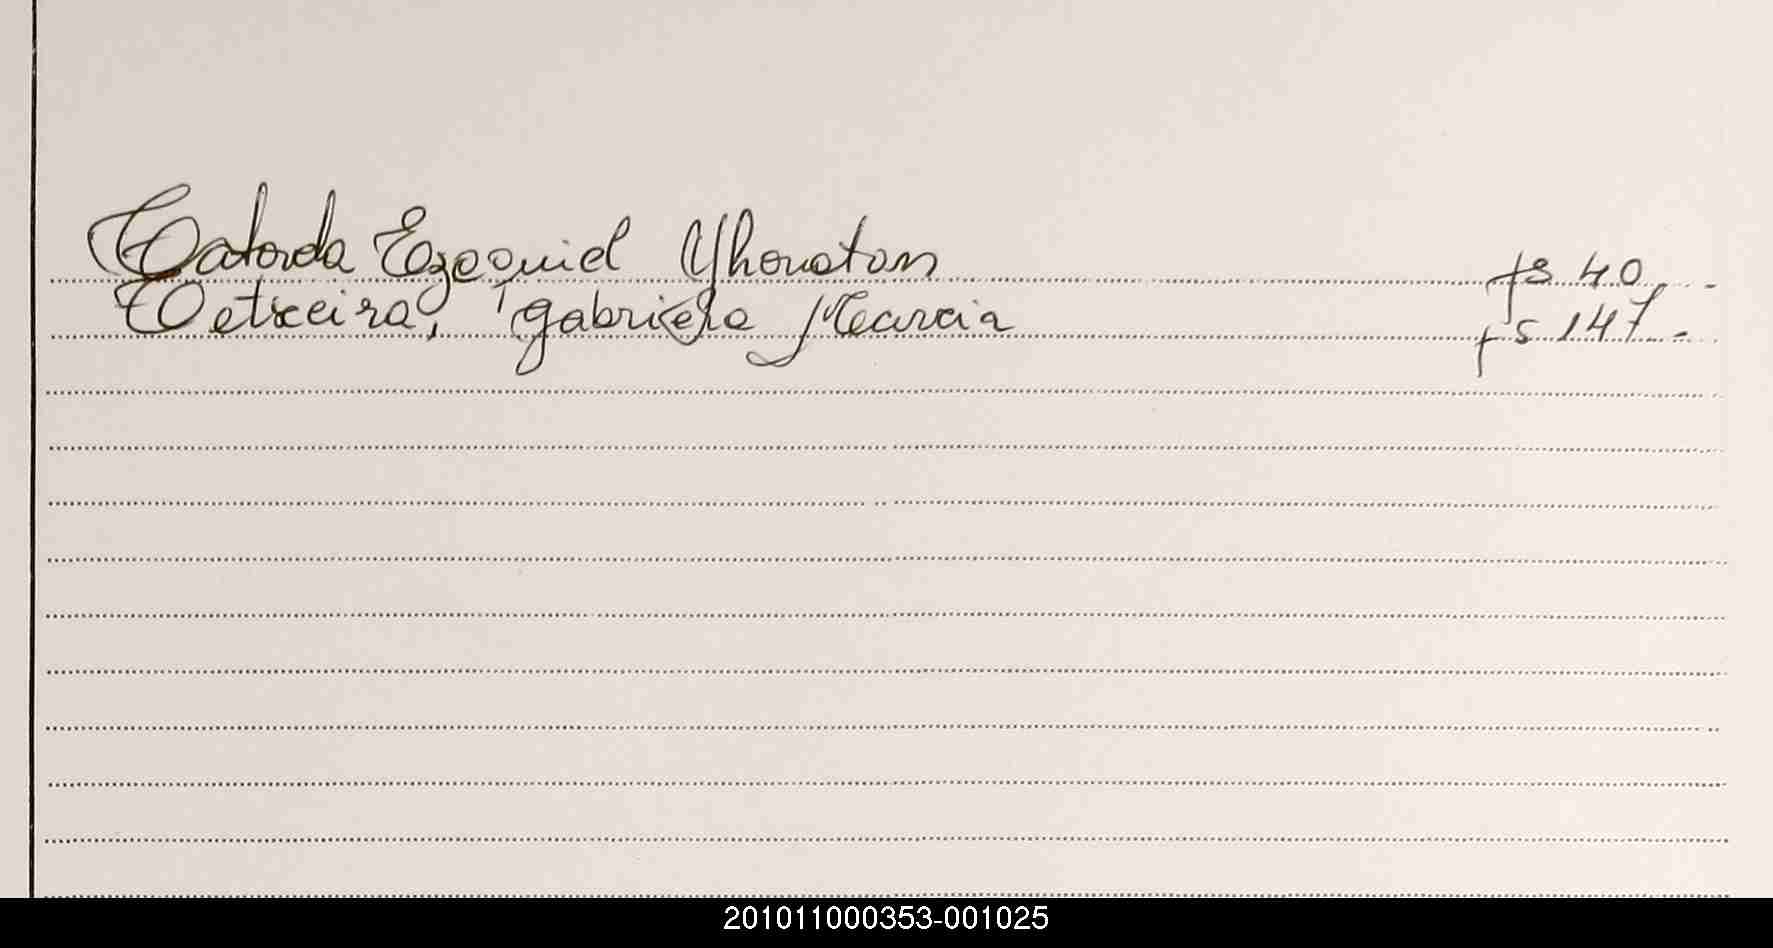 Taborda Ezequiel Yhonatan fs 40.-
Teixeira, Gabriela Marcia fs 147.-
201011000353-001025